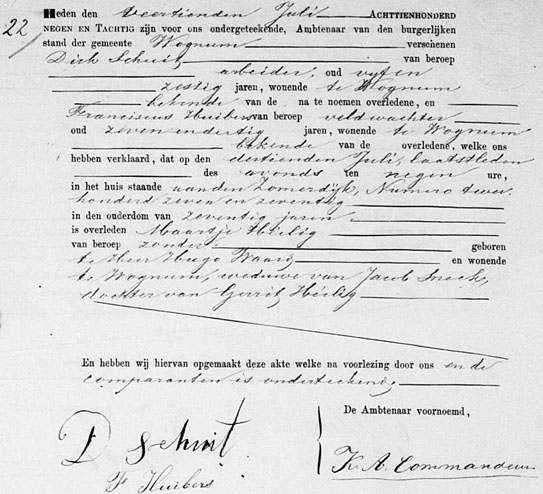 22
Heden den veertienden Juli ACHTTIENHONDERD
NEGEN EN TACHTIG zijn voor ons ondergeteekende, Ambtenaar van den burgerlijken
stand der gemeente Wognum verschenen
Dirk Schuit van beroep
arbeider, oud vijf en
zestig jaren, wonende te Wognum
bekende van de na te noemen overledene, en
Franciscus Huibers van beroep veldwachter
oud zeven en dertig jaren, wonende te Wognum
bekende van de overledene, welke ons
hebben verklaard, dat op den dertienden Juli, laatstleden
des avonds ten negen ure,
in het huis staande aan den Zomerdijk, Numero twee
honderd zeven en zeventig
in den ouderdom van zeventig jaren
is overleden Maartje Heilig
van beroep zonder geboren
te Heer Hugo Waard en wonende
te Wognum, weduwe van Jacob
dochter van Gerrit Heilig
En hebben wij hiervan opgemaakt deze akte welke na voorlezing door ons en de
comparanten is onderteekend.
De Ambtenaar voornoemd,
D Schuit
F Huibers
K. A. Commandeur